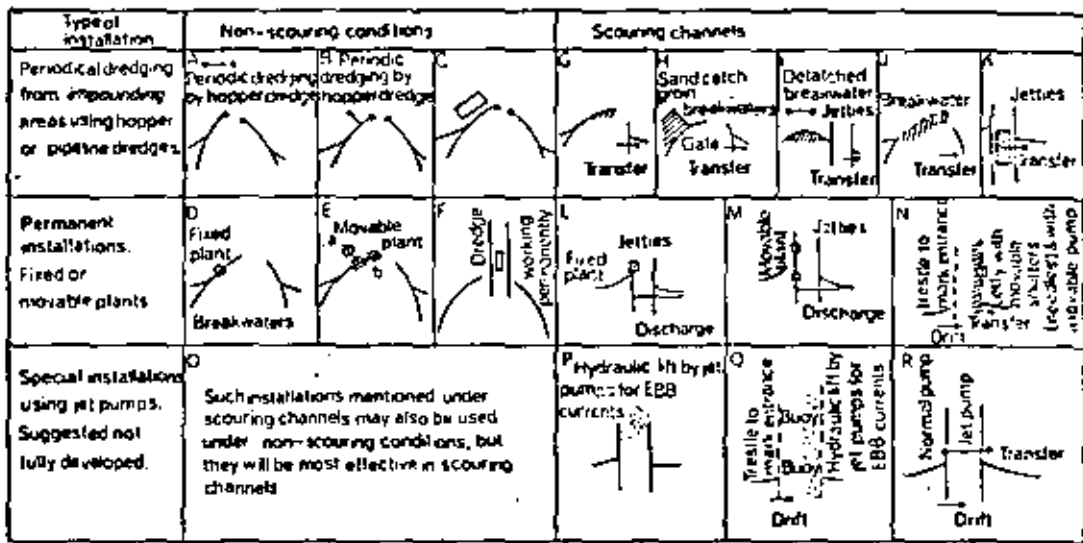 Type of
installation
Non-scouring conditions
Scouring channels
Periodical dredging
from impounding
areas using hopper
or pipeline dredges.
A
Periodic dredging
by hopper dredge
B Periodic
dredging by
hopper dredge
C
G
Transfer
H
Sand catch
groin
breakwaters
Gate
Transfer
I
Detatched
breakwater
Jetties
Transfer
J
Breakwater
Transfer
K
Jetties
Transfer
Permanent
installations.
Fixed or
movable plants
D
Fixed
plant
Breakwaters
E
Movable
plant
a
b
F
Dredge
working
permanently
L
Jetties
Fixed
plant
Discharge
M
Movable
plant
Jetties
Discharge
N
Trestle to
mark entrance
Drift
Transfer
Jetty with
movable
shutters
(needles) with
movable pump
Special installations
using jet pumps.
Suggested not
fully developed.
O
Such installations mentioned under
scouring channels may also be used
under non-scouring conditions, but
they will be most effective in scouring
channels
P Hydraulic lift by jet
pumps for EBB
currents
Q
Trestle to
mark entrance
Buoy
Buoy
Hydraulic lift by
jet pumps for
EBB currents
Drift
R
Normal pump
Jet pump
Transfer
Drift